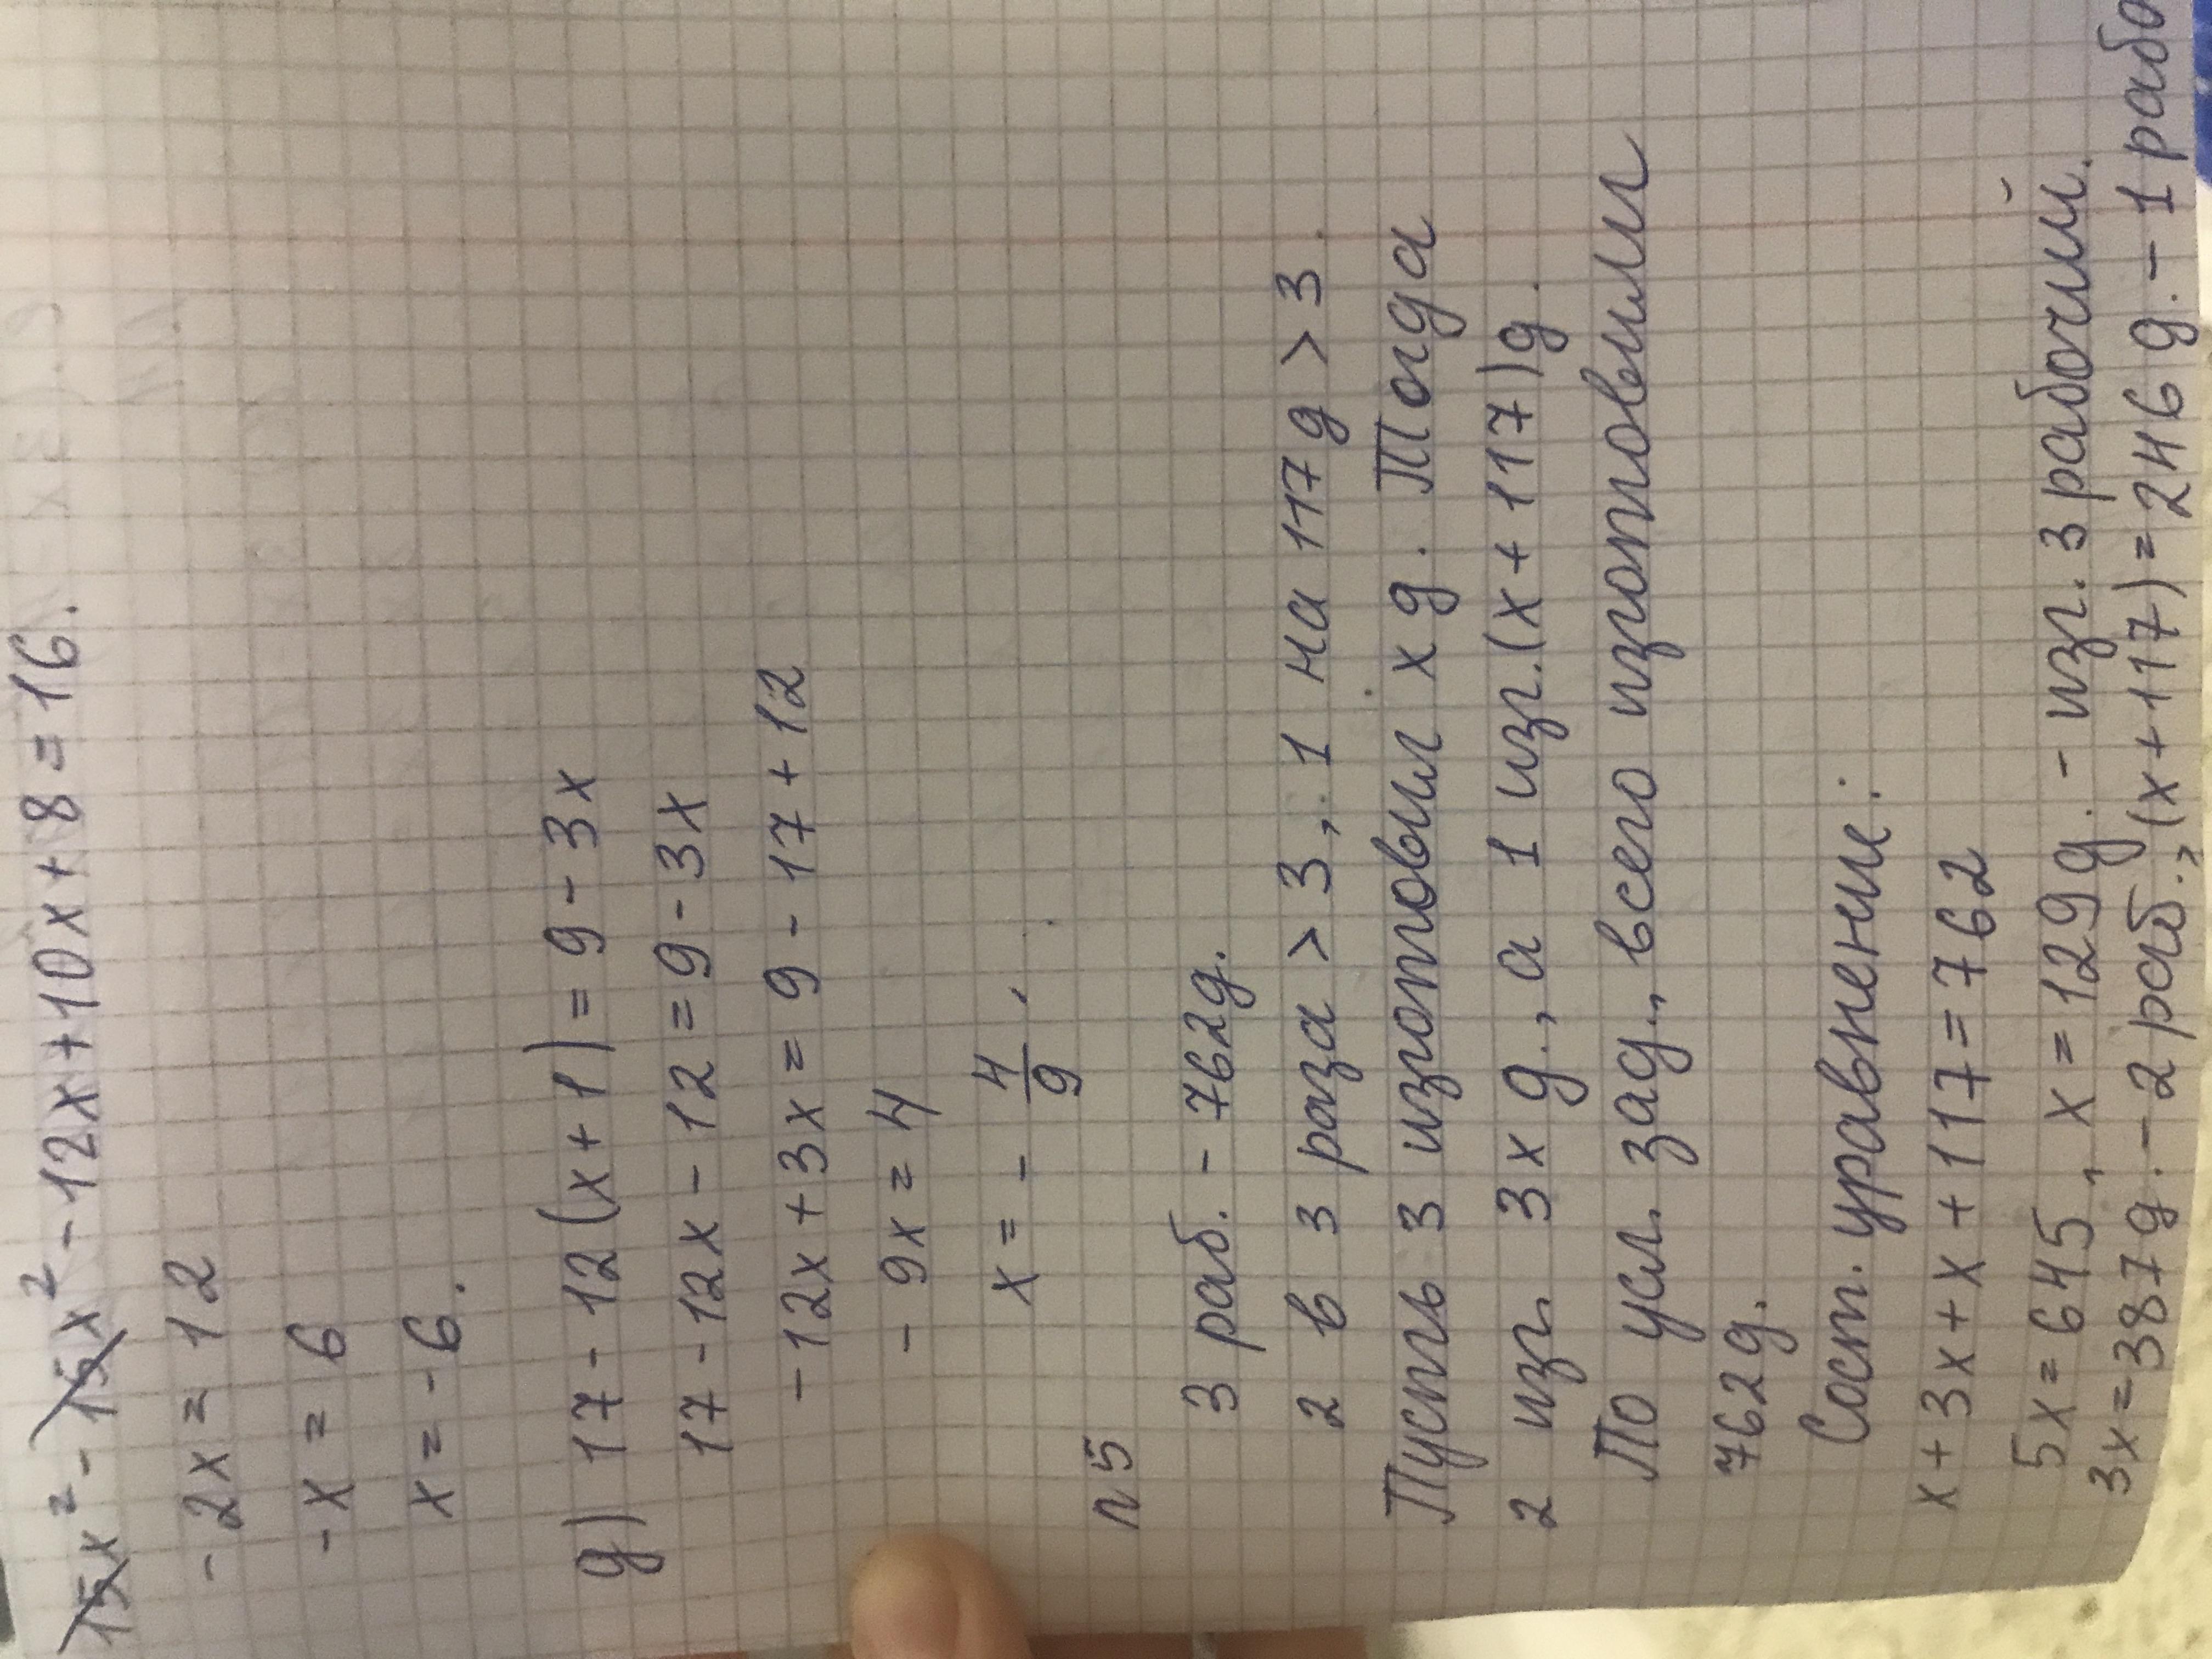 15x² - 15x² - 12x + 10x + 8 = 16.
- 2x = 12
- x = 6
x = - 6.
g) 17 - 12(x + 1) = 9 - 3x
17 - 12x - 12 = 9 - 3x
- 12x + 3x = 9 - 17 + 12
- 9x = 4
x = - 4/9.
n 5
3 раб. - 762g.
2 в 3 раза > 3, 1 на 117g > 3.
Пусть 3 изготовил x g. Тогда
2 изг. 3x g., а 1 изг.(x + 117)g.
По усл. зад., всего изготовили
762g.
Сост. уравнение:
x + 3x + x + 117 = 762
5x = 645, x = 129g. - изг. 3 рабочий.
3x = 387g. - 2 раб., (x + 117) = 246g. - 1 рабо